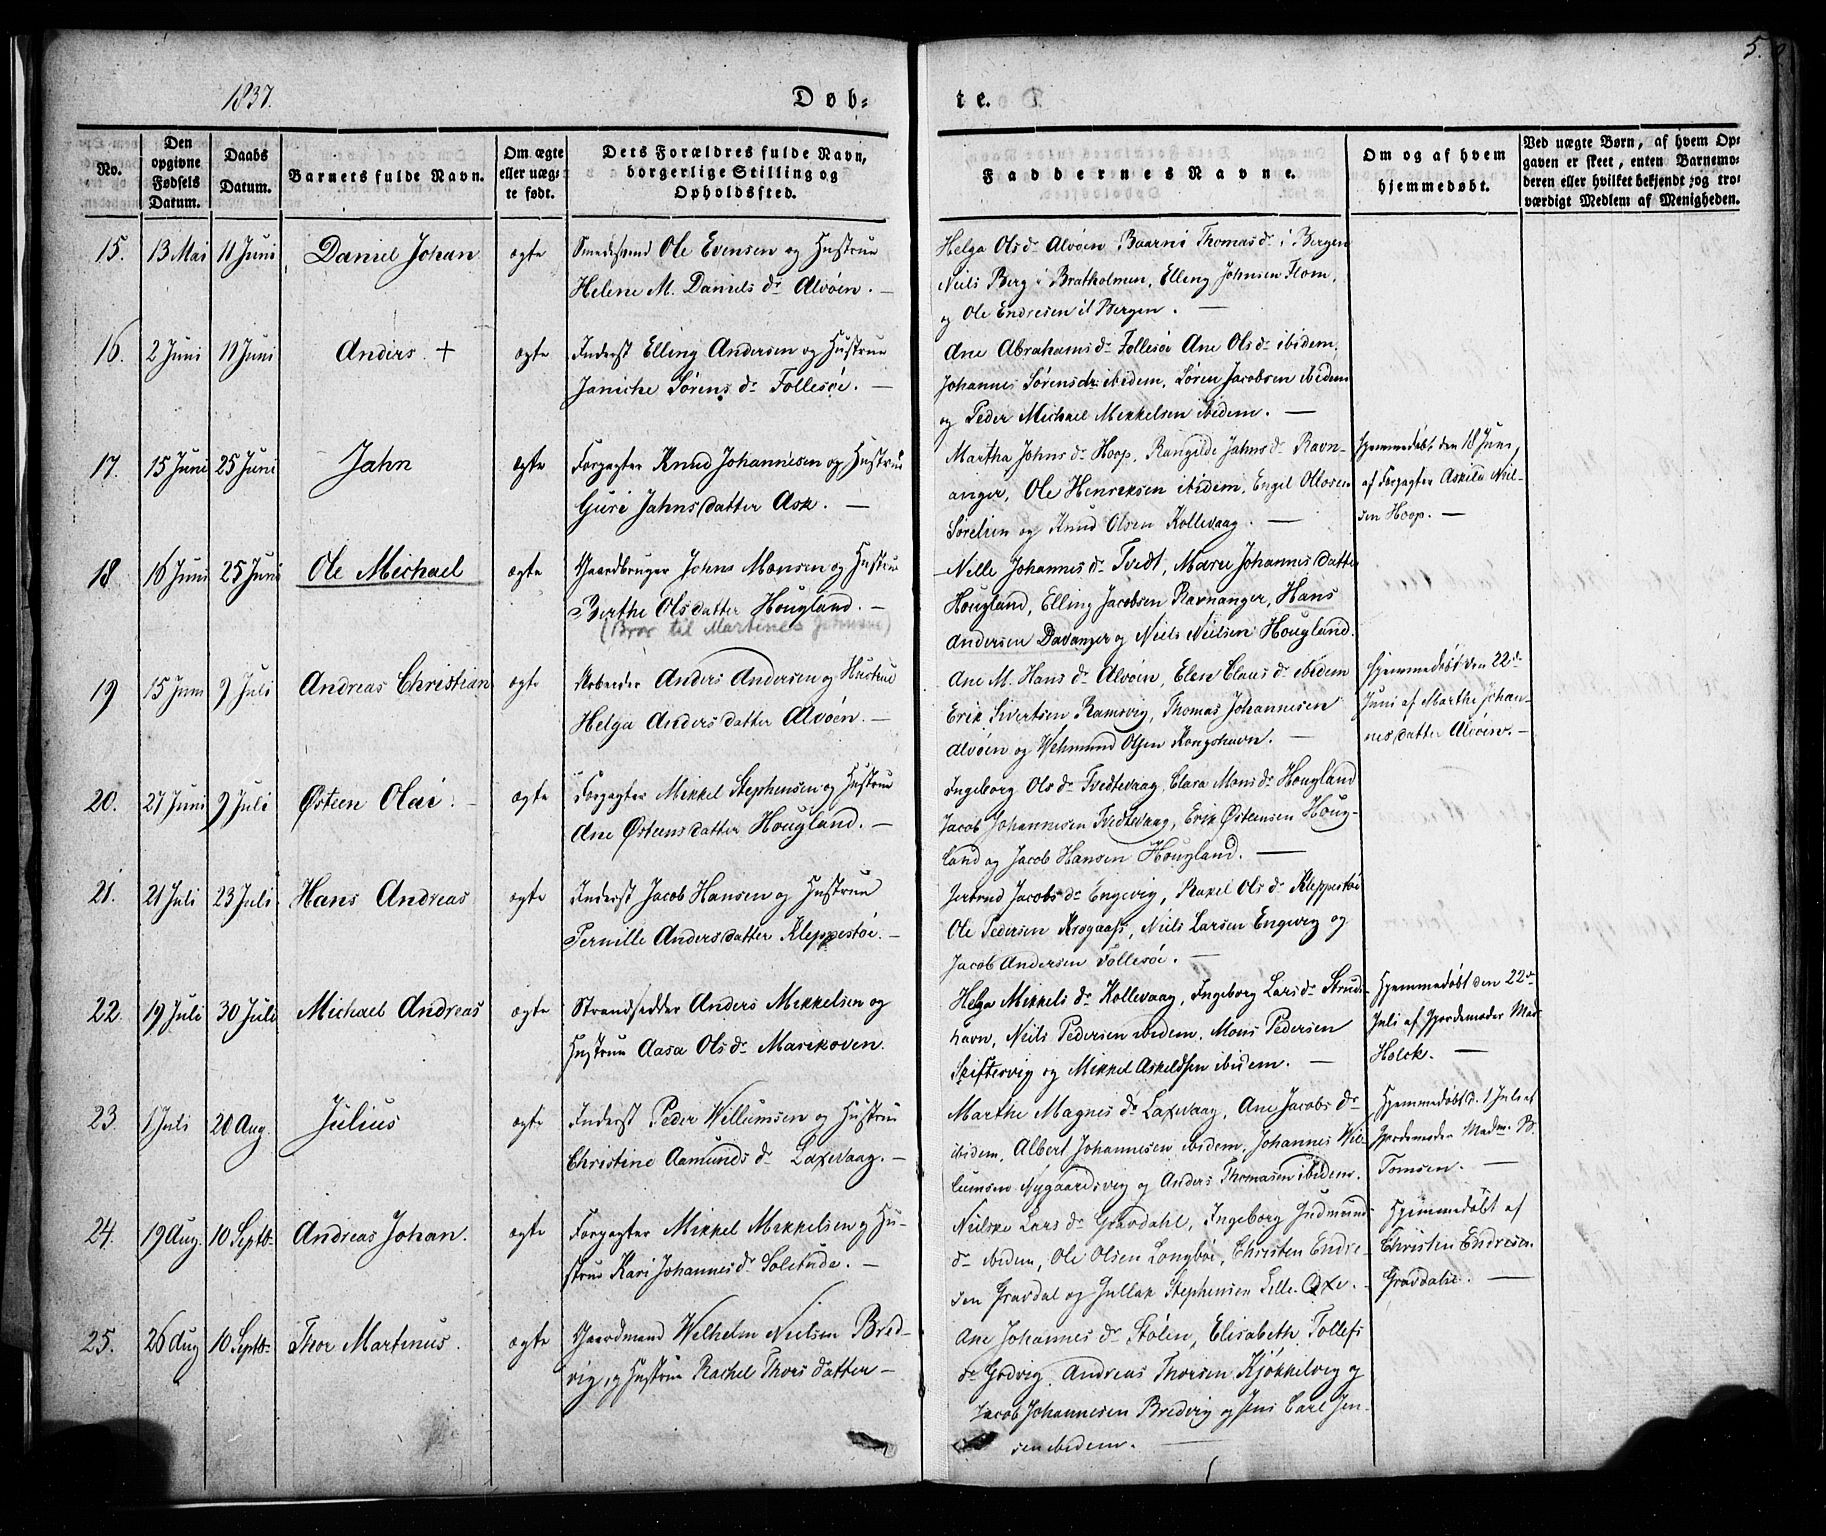 5.
1837.
Døb-
te.
No.
Den
opgivne
Fødsels
Datum.
Daabs
Datum.
Barnets fulde Navn.
Om ægte
eller uæg-
te født.
Dets Forældres fulde Navn,
borgerlige Stilling og
Opholdssted.
Faddernes Navne.
Om og af hvem
hjemmedøbt.
Ved uægte Børn, af hvem Op-
gaven er skeet, enten Barnemo-
deren eller hvilket bekjendt og tro-
værdigt Medlem af Menigheden.
15. 13 Mai 11 Juni Daniel Johan ægte
Smedesvend Ole Evensen og Hustrue
Helene M. Daniels dr Alvøen. —
Helga Ols dr Alvøen, Baarni Thomas dr i Bergen
Niels Berg i Bratholmen, Elling Johnsen Flom,
og Ole Endresen i Bergen. —
16. 2 Juni 11 Juni Anders. + ægte
Inderst Elling Andersen og Hustrue
Janiche Sørens dr Follesøe. —
Ane Abrahams dr Follesøe Ane Ols dr ibidem,
Johannes Sørens dr ibidem, Søren Jacobsen ibidem
og Peder Michael Mikkelsen ibidem. —
17. 15 Juni 25 Juni Jahn ægte
Forpagter Knud Johannesen og Hustrue
Guri Jahnsdatter Ask. —
Martha Johns dr Hoop, Rangilde Jahns dr Ravn-
anger, Ole Henriksen ibidem, Engel Olsen
og Knud Olsen Kollevaag. —
Hjemmedøbt den 18 Juni,
af Forpagter Askild Niel-
sen Hoop. —
18. 16 Juni 25 Juni Ole Michael ægte
Gaardbruger Johns Monsen og Hustrue
Berthe Olsdatter Hougland. —
(Bror til Martines Johnsen)
Nille Johannes dr Tvedt, Marie Johannisdatter
Hougland, Elling Jacobsen Ravnanger, Hans
Andersen Davanger og Niels Nielsen Hougland.
19 15 Juni 9 Juli Andreas Christian ægte
Arbeider Anders Andersen og Hustrue
Helga Andersdatter Alvøen. —
Ane M. Hans dr Alvøin, Elen Claus dr ibidem
Erik Sivertsen Ramsvig, Thomas Johannesen
Alvøen og Vehmund Olsen Kongshavn. —
Hjemmedøbt den 22de
Juni af Marthe Johan-
nesdatter Alvøen. —
20. 27 Juni 9 Juli Østeen Olai. ægte
Forpagter Mikkel Stephensen og Hustrue
Ane Østensdatter Hougland. —
Ingeborg Ols dr Tvedtevaag, Clara Mons dr Hougland
Jacob Johannesen Tvedtevaag, Erik Østensen Houg-
land og Jacob Hansen Hougland. —
21. 21 Juli 23 Juli Hans Andreas ægte
Inderst Jacob Hansen og Hustrue
Pernille Andersdatter Kleppestøe. —
Jertrud Jacobs dr Engevig, Rakel Ols dr Kleppestøe
Ole Pedersen Krogaas, Niels Larsen Engevig og
Jacob Andersen Follesøe. —
22. 19 Juli 30 Juli Michael Andreas ægte
Strandsidder Anders Mikkelsen og
Hustrue Aasa Ols dr Marikoven.
Helga Mikkels dr Kollevaag, Ingeborg Lars dr Struds-
havn, Niels Pedersen ibidem, Mons Pedersen
Skiftesvig og Mikkel Askeldsen ibidem. —
Hjemmedøbt den 22de
Juli af Gjordemoder Mad.
Holck. —
23. 1 Juli 20 Aug. Julius ægte
Inderst Peder Willumsen og Hustrue
Christine Aamunds dr Laxevaag. —
Marthe Magnes dr Laxevaag, Ane Jacobs dr
ibidem, Albert Johannesen ibidem, Johannes Wil-
lumsen Nygaardsvig og Anders Thomasen ibidem.
Hjemmedøbt d. 1 Juli af
Gjordemoder Madm. B.
Tomsen. —
24. 19 Aug. 10 Septb. Andreas Johan. ægte
Forpagter Mikkel Mikkelsen og Hu-
strue Kari Johannes dr Solitude. —
Nilske Lars dr Gravdahl, Ingeborg Gudmunds
dr ibidem, Ole Olsen Longbøe, Christen Endre-
sen Gravdal og Gullak Stephensen Lille Oxe. —
Hjemmedøbt af
Christen Endresen
Gravdahl. —
25. 26 Aug 10 Septb. Thor Martinus. ægte
Gaardmand Wilhelm Nielsen Bred-
vig, og Hustrue Rachel Thorsdatter —
Ane Johannes dr Stølen, Elisabeth Tollefs
dr Godvig, Andreas Thorsen Kjøkkelvig og
Jacob Johannesen Bredvig og Jens Carl Jen-
sen ibidem. —